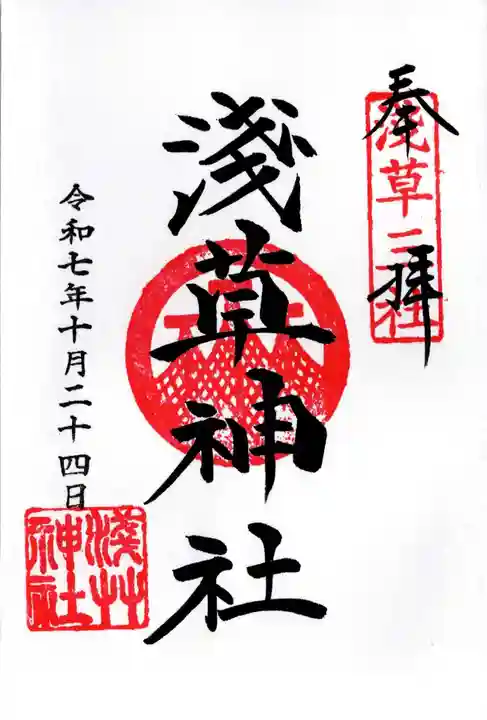 奉拝
淺草三社
淺草神社
令和七年十月二十四日
淺草神社